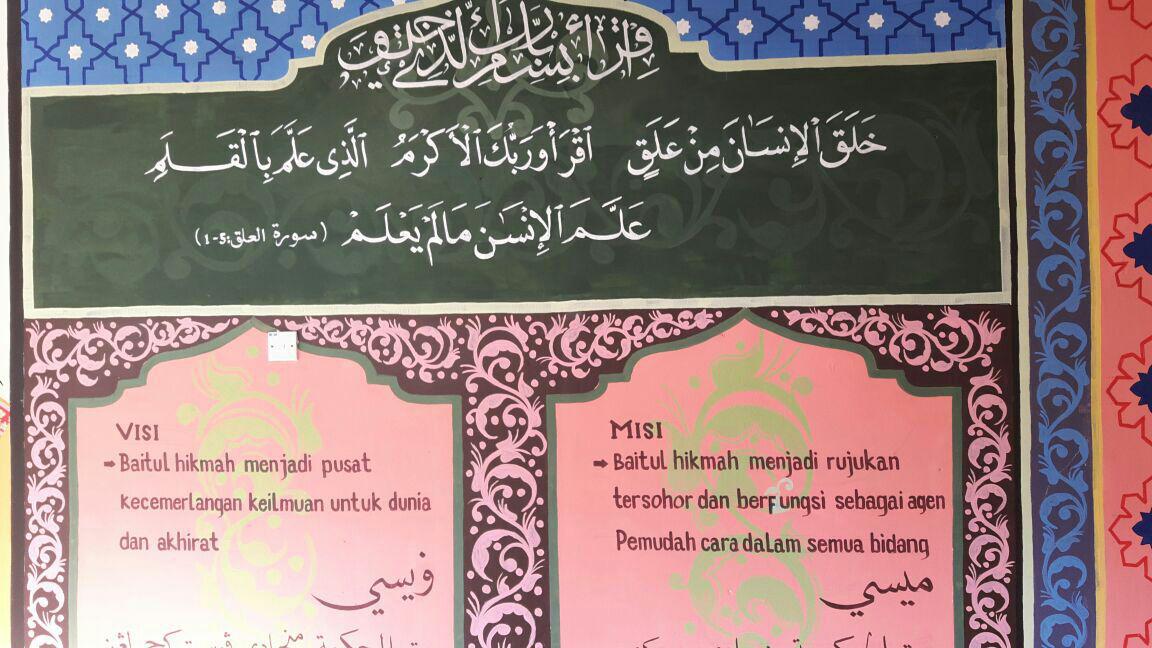 اقرأ باسم ربك الذي خلق
خَلَقَ ٱلْإِنسَانَ مِنْ عَلَقٍ ٱقْرَأْ وَرَبُّكَ ٱلْأَكْرَمُ ٱلَّذِى عَلَّمَ بِٱلْقَلَمِ
عَلَّمَ ٱلْإِنْسَٰنَ مَا لَمْ يَعْلَمْ (سورة العلق:5-1)
VISI
➡ Baitul hikmah menjadi pusat
kecemerlangan keilmuan untuk dunia
dan akhirat
ۏيسي
MISI
➡ Baitul hikmah menjadi rujukan
tersohor dan berfungsi sebagai agen
Pemudah cara dalam semua bidang
ميسي